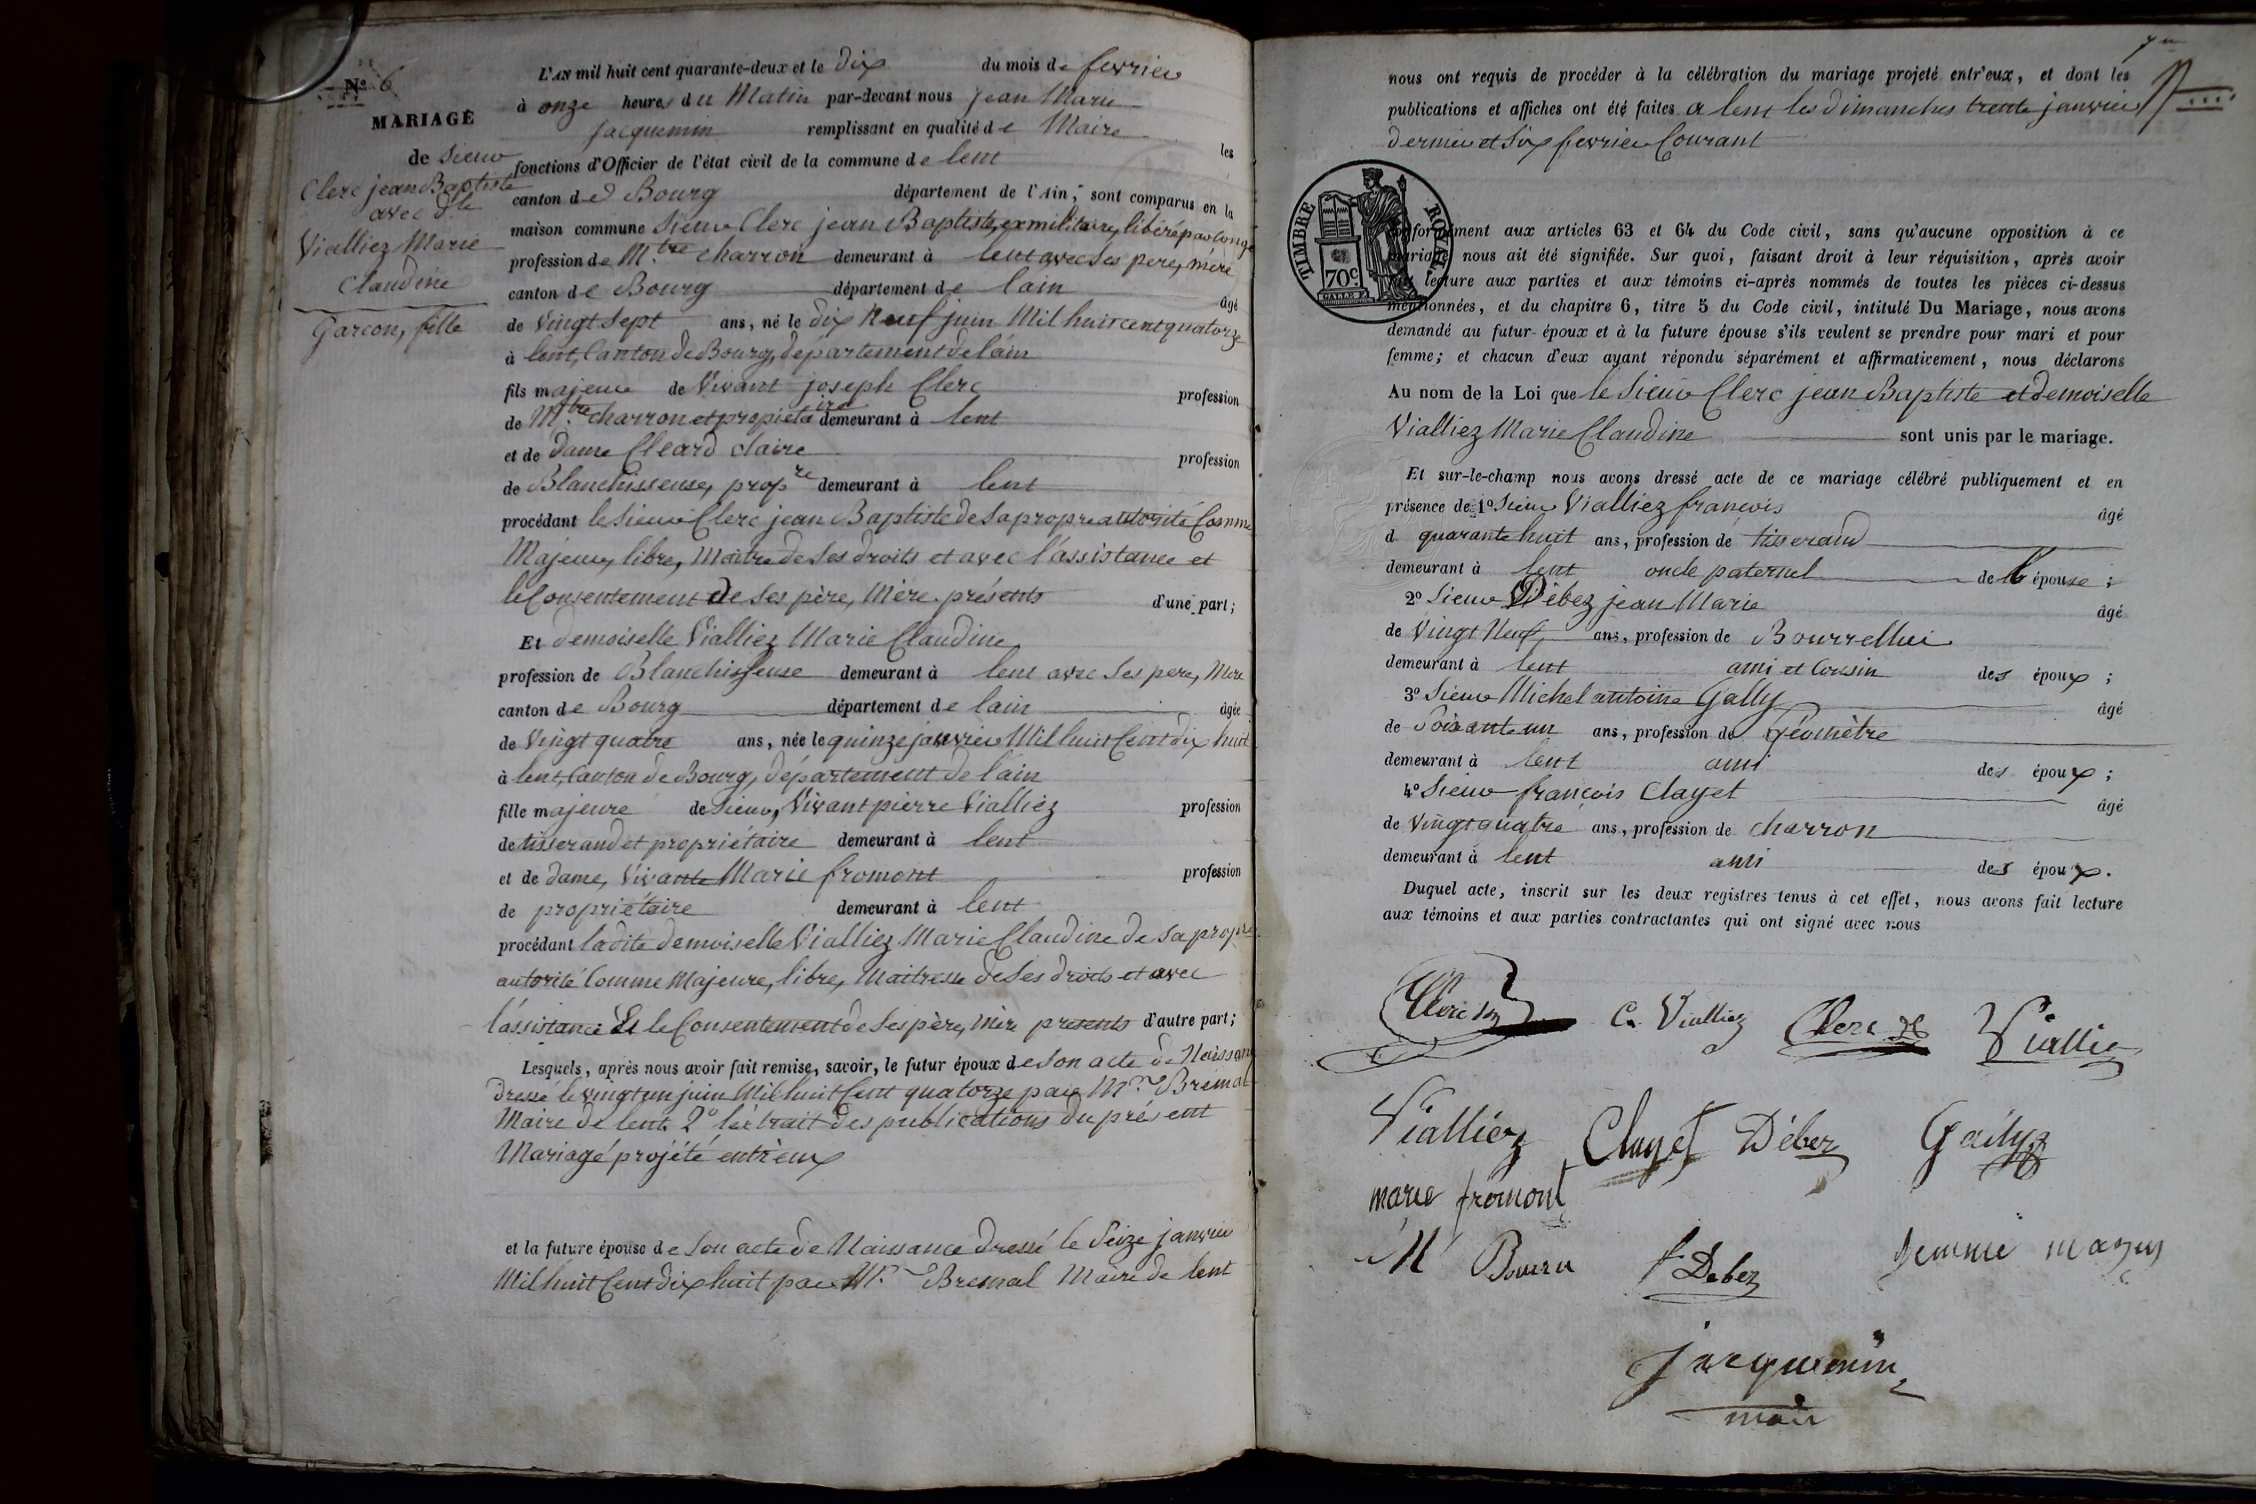 N° 6
MARIAGE
de Sieur
Clerc jean Baptiste
avec dlle
Vialliez Marie
Claudine
Garcon, fille
L'AN mil huit cent quarante-deux et le dix du mois de fevrier
à onze heures du Matin par-devant nous jean Marie
jacquemin remplissant en qualité de Maire les
fonctions d'Officier de l'état civil de la commune de lent
canton de Bourg département de l'Ain, sont comparus en la
maison commune Sieur Clerc jean Baptiste, ex militaire, libéré par congé
profession de Mtre charron demeurant à lent avec Ses pere, mere
canton de Bourg département de lain âgé
de Vingt Sept ans, né le dix Neuf juin Mil huit cent quatorze
à lent, Canton de Bourg, département de l'ain
fils majeur de Vivant joseph Clerc profession
de Mtre charron et propriétaire demeurant à lent
et de Dame Cleard claire profession
de Blanchisseuse, propre demeurant à lent
procédant le Sieur Clerc jean Baptiste de Sa propre autorité Comme
Majeur, libre, Maitre de Ses droits et avec l'assistance et
le Consentement de Ses père, Mère présents d'une part;
Et demoiselle Vialliez Marie Claudine
profession de Blanchisseuse demeurant à lent avec Ses pere, Mere
canton de Bourg département de lain âgée
de Vingt quatre ans, née le quinze janvier Mil huit Cent dix huit
à lent, Canton de Bourg, département de l'ain
fille majeure de Sieur, Vivant pierre Vialliez profession
de tisserand et propriétaire demeurant à lent
et de Dame, Vivante Marie fromont profession
de propriétaire demeurant à lent
procédant ladite demoiselle Vialliez Marie Claudine de Sa propre
autorité Comme Majeure, libre, Maitresse de Ses droits et avec
l'assistance Et le Consentement de Ses père, Mère presents d'autre part;
Lesquels, après nous avoir fait remise, savoir, le futur époux de Son acte de Naissance
dressé le vingt un juin Mil huit Cent quatorze par Mr Bremal
Maire de lent. 2° l'extrait des publications du présent
Mariage projété entr'eux
et la future épouse de Son acte de Naissance dressé le Seize janvier
Mil huit Cent dix huit par Mr Bremal Maire de lent
nous ont requis de procéder à la célébration du mariage projeté entr'eux, et dont les
publications et affiches ont été faites a lent les dimanches trente janvier
dernier et Six fevrier Courant
TIMBRE ROYAL
70c
conformément aux articles 63 et 64 du Code civil, sans qu'aucune opposition à ce
mariage nous ait été signifiée. Sur quoi, faisant droit à leur réquisition, après avoir
fait lecture aux parties et aux témoins ci-après nommés de toutes les pièces ci-dessus
mentionnées, et du chapitre 6, titre 5 du Code civil, intitulé Du Mariage, nous avons
demandé au futur époux et à la future épouse s'ils veulent se prendre pour mari et pour
femme; et chacun d'eux ayant répondu séparément et affirmativement, nous déclarons
Au nom de la Loi que le Sieur Clerc jean Baptiste et demoiselle
Vialliez Marie Claudine sont unis par le mariage.
Et sur-le-champ nous avons dressé acte de ce mariage célébré publiquement et en
présence de 1° Sieur Vialliez françois âgé
d quarante huit ans, profession de tisserand
demeurant à lent oncle paternel de l'épouse;
2° Sieur Débez jean Marie âgé
de Vingt Neuf ans, profession de Bourrellier
demeurant à lent ami et Cousin des époux;
3° Sieur Michel antoine Gally âgé
de Soixante un ans, profession de Géomètre
demeurant à lent ami des époux;
4° Sieur françois Clayet âgé
de Vingt quatre ans, profession de charron
demeurant à lent ami des époux.
Duquel acte, inscrit sur les deux registres tenus à cet effet, nous avons fait lecture
aux témoins et aux parties contractantes qui ont signé avec nous
Clerc C. Vialliez Clerc Viallie
Vialliez Clayet Débez Gally
marie fromont
M f Debez femme mazuy
jacquemin
mair